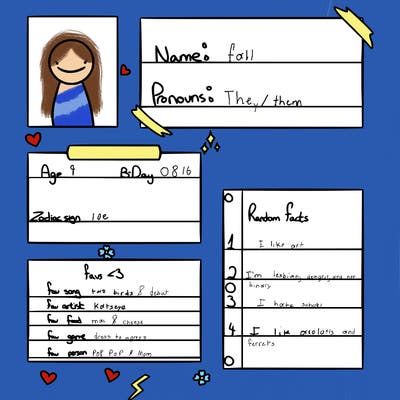 Name: fall
Pronouns: They/them
Age 9 BDay 0816
Zodiac sign leo
favs <3
fav song two birds & debut
fav artist Katseye
fav food mac & cheese
fav game dress to impress
fav person PoP PoP & Mom
Random facts
1 I like art
2 I'm lesbian, and non
binary
3 I hate school
4 I like axolotls and
ferrets